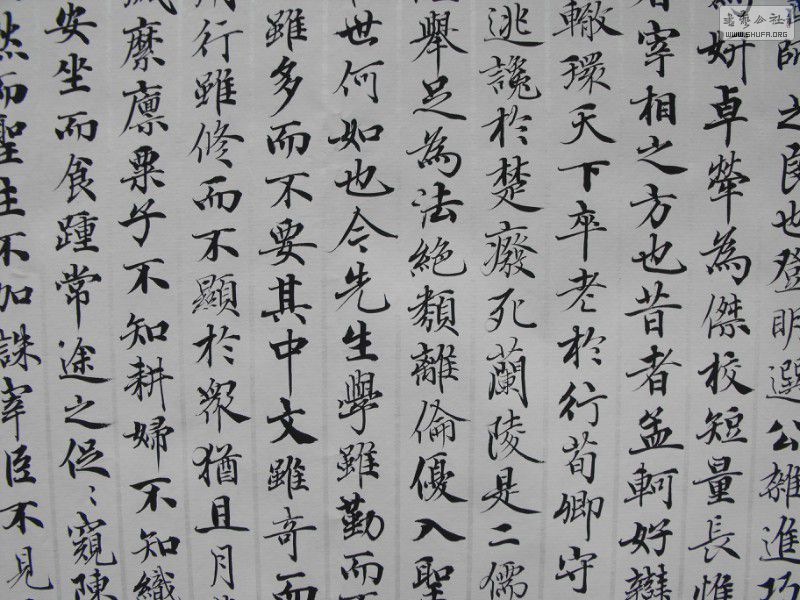 師之良也登明選公雜進巧
為妍卓犖為傑校短量長惟
者宰相之方也昔者孟軻好辯
轍環天下卒老於行荀卿守
逃讒於楚廢死蘭陵是二儒
舉足為法絕類離倫優入聖
世何如也今先生學雖勤而
雖多而不要其中文雖奇而
行雖修而不顯於眾猶且月
糜廩粟子不知耕婦不知織
安坐而食踵常途之促〻窺陳
然而聖主不加誅宰臣不見
書法公社
WWW.SHUFA.ORG